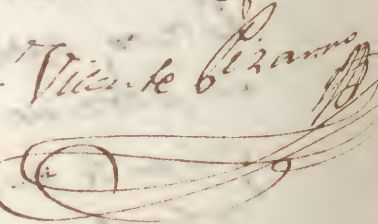 Vicente Pizarro